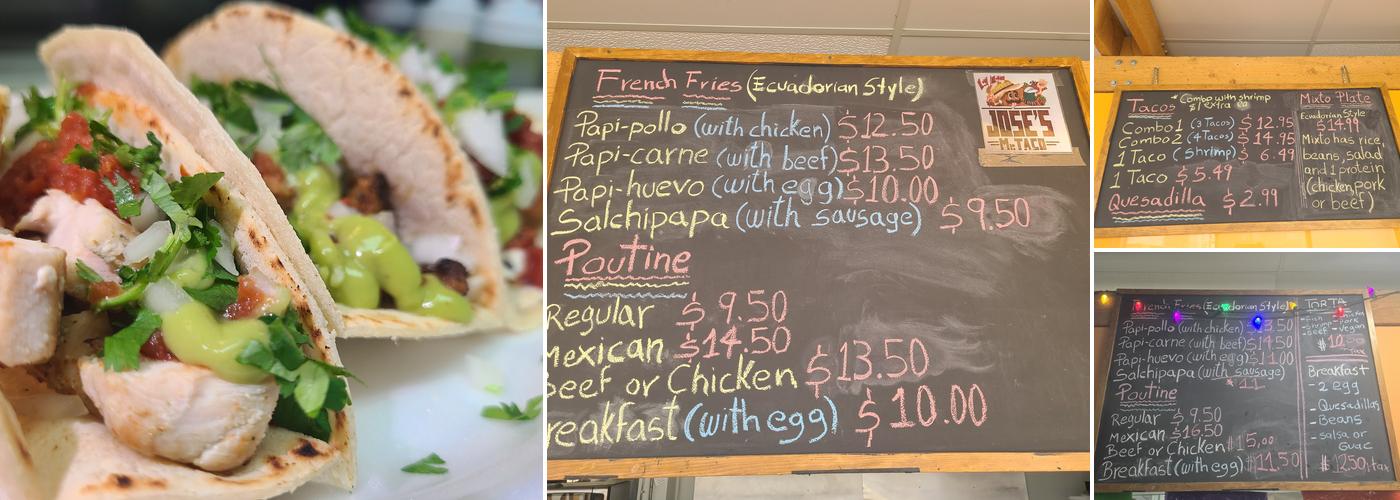 French Fries (Ecuadorian Style)
Papi-pollo (with chicken) $12.50
Papi-carne (with beef) $13.50
Papi-huevo (with egg) $10.00
Salchipapa (with sausage) $9.50
Poutine
Regular $9.50
Mexican $14.50
Beef or Chicken $13.50
Breakfast (with egg) $10.00
JOSE'S
Mr. TACO
Tacos *Combo with shrimp
$1 extra
Combo 1 (3 Tacos) $12.95
Combo 2 (4 Tacos) $14.95
1 Taco (Shrimp) $6.49
1 Taco $5.49
Quesadilla $2.99
Mixto Plate
Ecuadorian Style
$14.99
Mixto has rice,
beans, salad
and 1 protein
(chicken, pork
or beef)
French Fries (Ecuadorian Style)
Papi-pollo (with chicken) $13.50
Papi-carne (with beef) $14.50
Papi-huevo (with egg) $11.00
Salchipapa (with sausage)
$11
Poutine
Regular $9.50
Mexican $16.50
Beef or Chicken $15.00
Breakfast (with egg) $11.50
TORTA
- vegan
Breakfast
- 2 egg
- Quesadillas
- Beans
- salsa or
Guac
$12.50 + tax